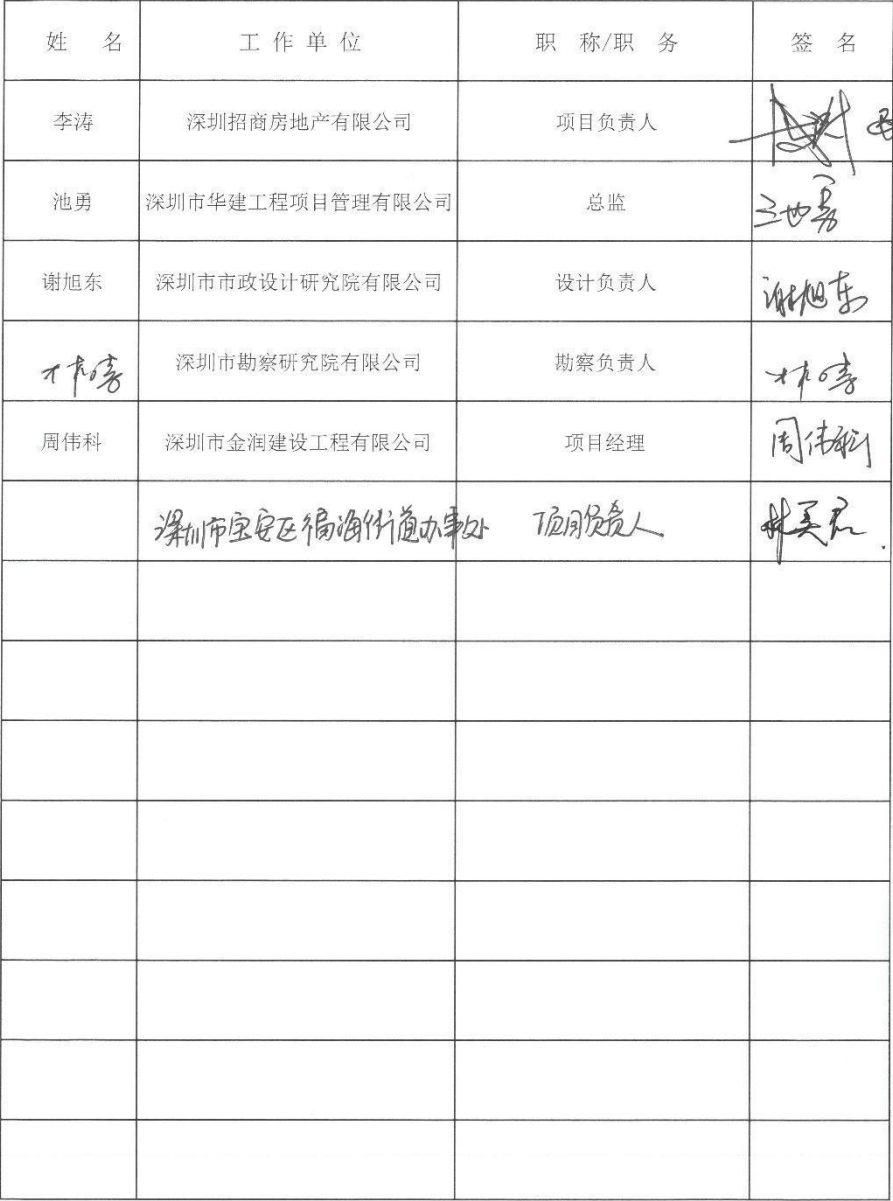 姓 名 工作单位 职 称/职 务 签 名
李涛 深圳招商房地产有限公司 项目负责人
池勇 深圳市华建工程项目管理有限公司 总监 池勇
谢旭东 深圳市市政设计研究院有限公司 设计负责人 谢旭东
深圳市勘察研究院有限公司 勘察负责人
周伟科 深圳市金润建设工程有限公司 项目经理 周伟科
深圳市宝安区福海街道办事处 项目负责人 林美君